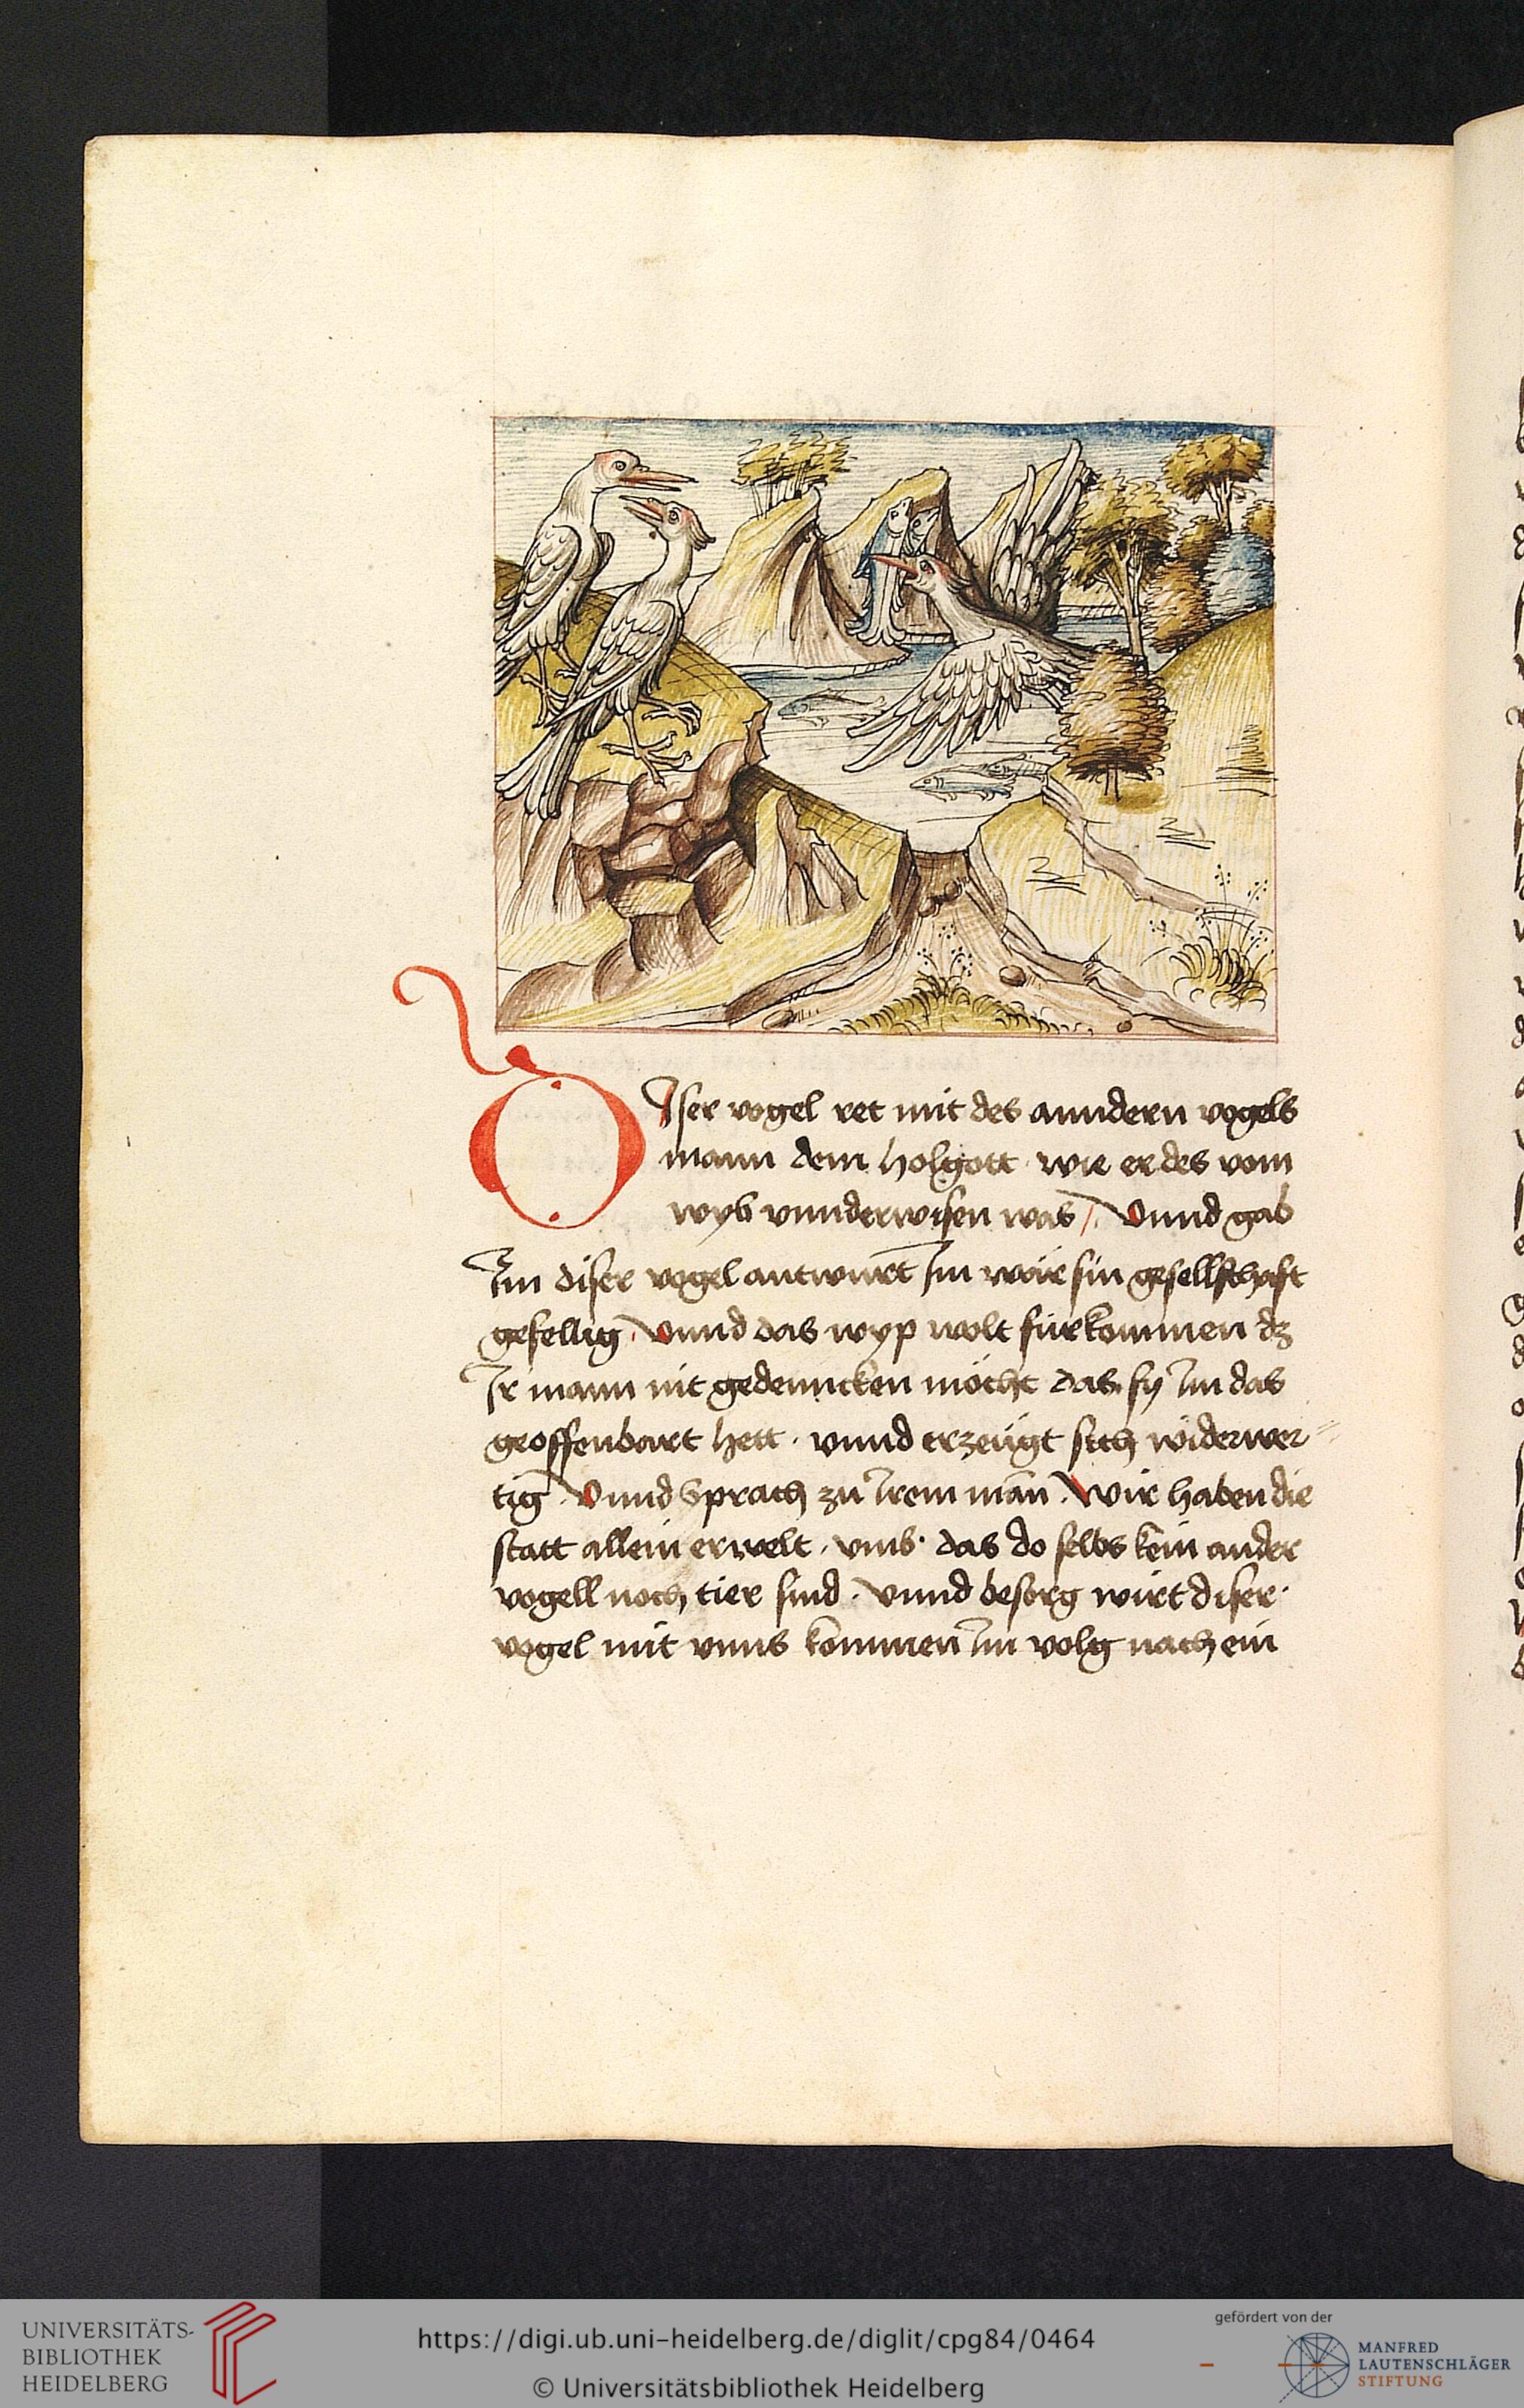 DIser vogel ret mit des anndern vogels
mann dem holgott · wie er des vom
wyb vnnderwisen was /. Vnnd gab
Im diser vogel antwurt Im wär sin gesellschafft
gefellig · Vnnd das wyp wolt fürkommen dz
Ir mann nit gedenncken möcht das sy Im das
geoffenbart hett · vnnd erzeügt sich widerwer=
tig · Vnnd sprach zu Irem man̄ · Wir haben die
statt allein erwelt · vmb · das do selbs kein ander
vogell noch tier sind · Vnnd besorg wirt diser ·
vogel mit vnns kommen Im volg nach ein
UNIVERSITÄTS-
BIBLIOTHEK
HEIDELBERG
https://digi.ub.uni-heidelberg.de/diglit/cpg84/0464
© Universitätsbibliothek Heidelberg
gefördert von der
MANFRED
LAUTENSCHLÄGER
STIFTUNG